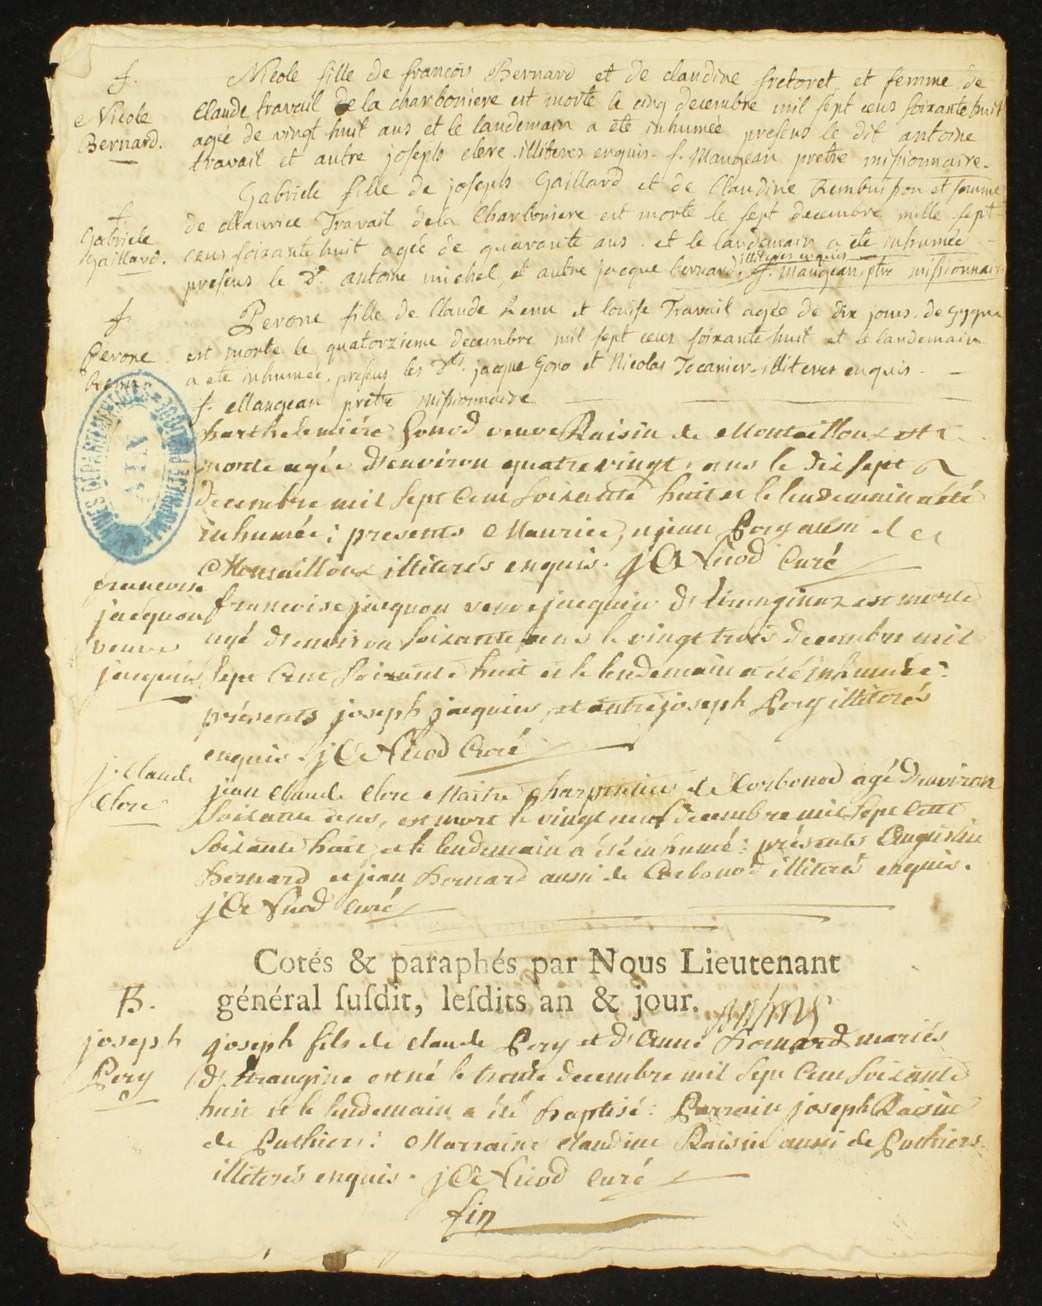 f.
Nicole
Bernard.
Nicole fille de francois Bernard et de claudine fretoret et femme de
Claude travail de la charboniere est morte le cinq decembre mil sept cens soixante huit
agée de vingt huit ans et le landemain a ete inhumée presens le dit antoine
travail et autre joseph clere illiteres enquis. f. Maugean pretre missionnaire.
f.
Gabriele
Gaillard.
Gabriele fille de joseph Gaillard et de Claudine et femme
de Maurice Travail dela Charboniere est morte le sept decembre mille sept
cens soixante huit agée de quarante ans. et le landemain a ete inhumée
presens le Dt. antoine michel, et autre jacque bernard illiteres enquis f. maugean ptre missionnair
f.
Perone
Perone fille de Claude et louise Travail agée de dix jours. de
est morte le quatorzieme decembre mil sept cens soixante huit et le landemain
a ete inhumée, presens les Dts. jacque et Nicolas Tocanier illiteres enquis.
f. Maugean pretre missionnaire
barthelemiere Gonod veuve Raisin de est
morte agée d'environ quatre vingt ans le dix sept
decembre mil sept cent soixante huit et le lendemain a été
inhumée; presents Maurice, et jean Pery aussi de
illiterés enquis. Nicod Curé
francoise
jacquou
veuve
jacquin
francoise jacquou veuve jacquin d'Etranginaz est morte
agé d'environ soixante ans le vingt trois decembre mil
sept cent soixante huit et le lendemain a été inhumée:
présents joseph jacquin, et autre joseph Pery illiterés
enquis. Nicod Curé
j. Claude
Clere
jean Claude Clere Maitre Charpentier de Corbonod agé d'environ
soixante ans, est mort le vingt neuf decembre mil sept cent
soixante huit, et le lendemain a été inhumé: présents Augustin
Bernard et jean Bernard aussi de Corbonod illiterés enquis.
Nicod curé
Cotés & paraphés par Nous Lieutenant
général susdit, lesdits an & jour.
B.
joseph
Pery
joseph fils de claude Pery et d'Anne Bernard mariés
d'Etrangine est né le trente decembre mil sept cent soixante
huit et le lendemain a été baptisé: Parrain joseph Raisin
de Puthier: Marraine claudine Raisin aussi de Puthiers
illiterés enquis. Nicod curé
fin